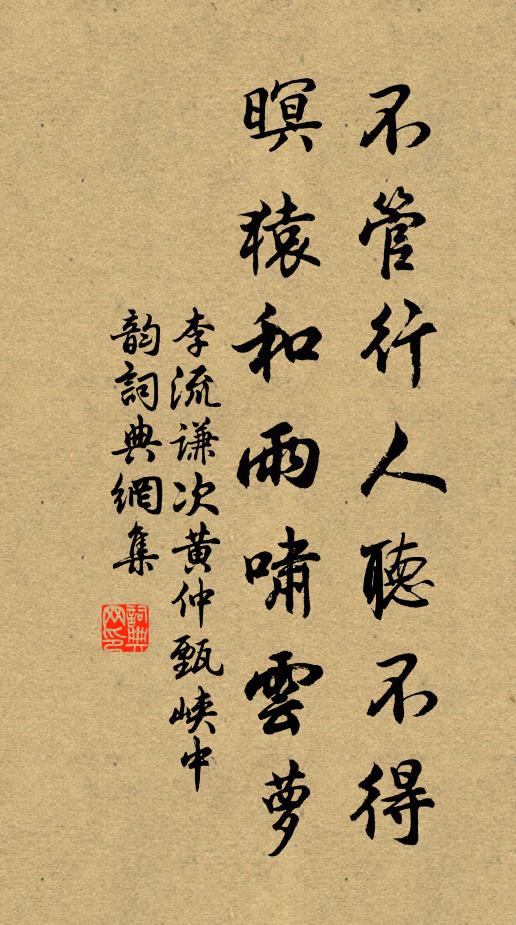 不管行人聽不得
暝猿和雨嘯雲蘿
李流谦次黄仲甄峽中
韵詞典網集
詞典網印